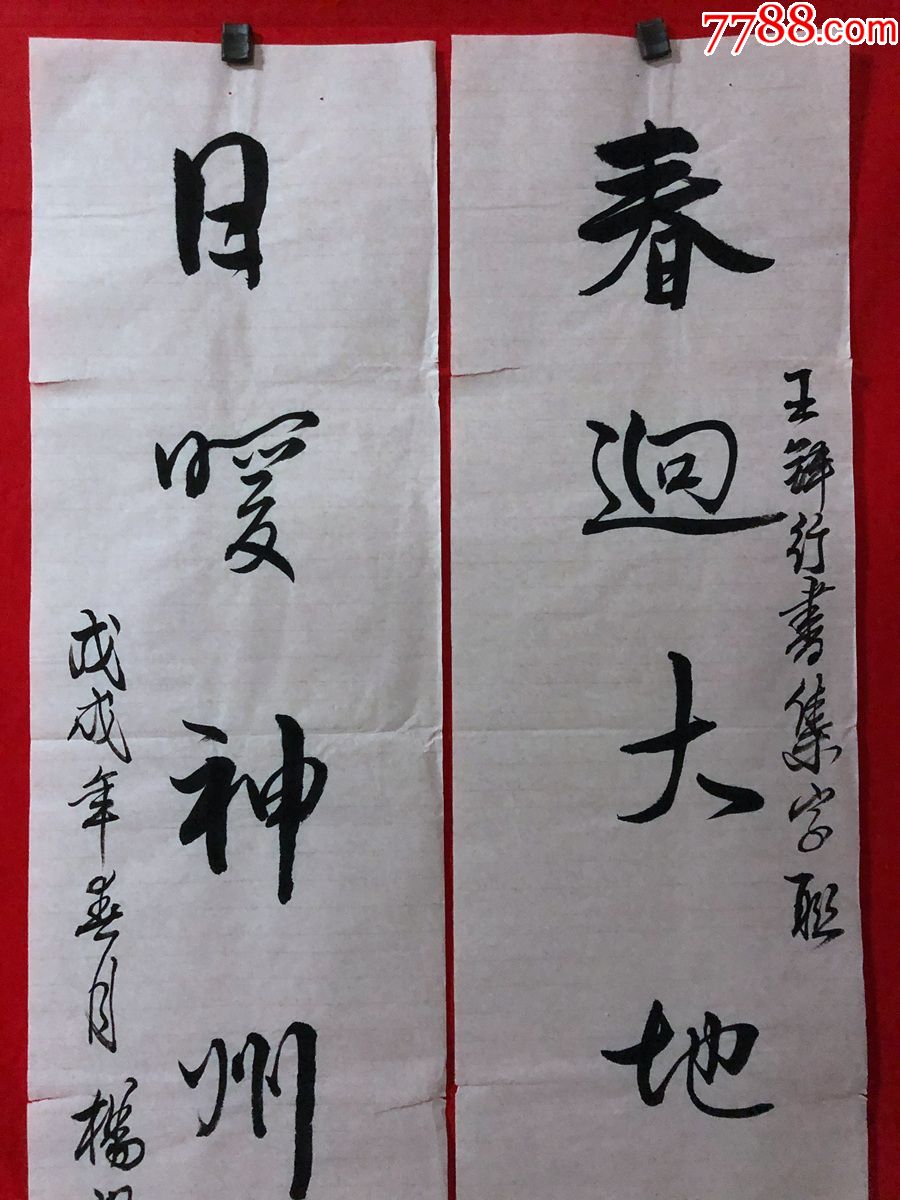 7788.com
春迴大地
王鐸行書集字聯
日暖神州
戊戌年春月楊